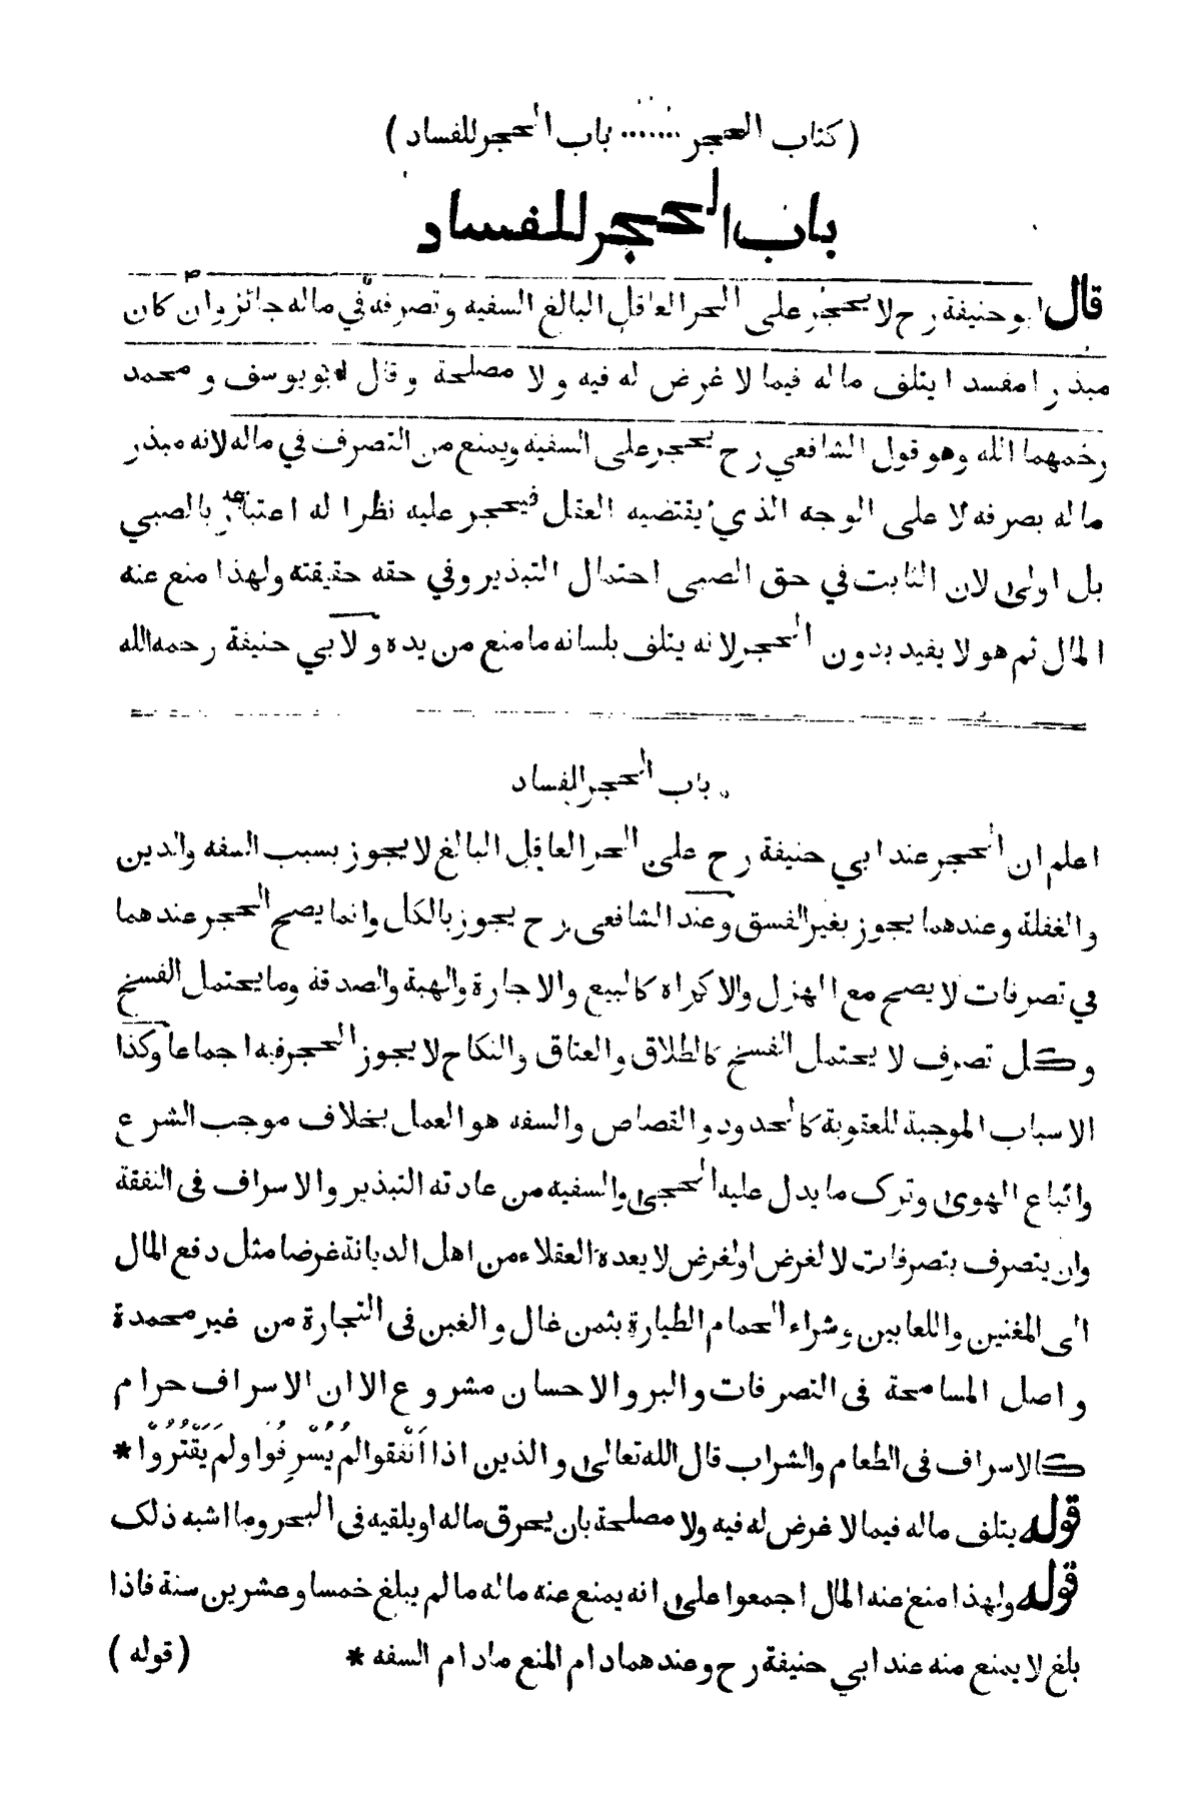 ( كتاب الحجر ....... باب الحجر للفساد )
باب الحجر للفساد
قال ابو حنيفة رح لا يحجر على الحر العاقل البالغ السفيه و تصرفه في ماله جائز وان كان
مبذرا مفسدا يتلف ماله فيما لا غرض له فيه و لا مصلحة و قال ابو يوسف و محمد
رحمهما الله وهو قول الشافعي رح يحجر على السفيه ويمنع من التصرف في ماله لانه مبذر
ماله بصرفه لا على الوجه الذي يقتضيه العقل فيحجر عليه نظرا له اعتبارا بالصبي
بل اولى لان الثابت في حق الصبى احتمال التبذير وفي حقه حقيقته ولهذا منع عنه
المال ثم هو لا يفيد بدون الحجر لانه يتلف بلسانه ما منع من يده و لابي حنيفة رحمه الله
باب الحجر للفساد
اعلم ان الحجر عند ابي حنيفة رح على الحر العاقل البالغ لا يجوز بسبب السفه والدين
والغفلة وعندهما يجوز بغير الفسق وعند الشافعى رح يجوز بالكل وانما يصح الحجر عندهما
في تصرفات لا يصح مع الهزل والاكراه كالبيع والاجارة والهبة والصدقة وما يحتمل الفسخ
وكل تصرف لا يحتمل الفسخ كالطلاق والعتاق والنكاح لا يجوز الحجر فيه اجماعا وكذا
الاسباب الموجبة للعقوبة كالحدود والقصاص والسفه هو العمل بخلاف موجب الشرع
واتباع الهوى وترك ما يدل عليه الحجى والسفيه من عادته التبذير والاسراف فى النفقة
وان يتصرف بتصرفات لا لغرض اولغرض لا يعده العقلاء من اهل الديانة غرضا مثل دفع المال
الى المغنين واللعابين وشراء الحمام الطيارة بثمن غال والغبن فى التجارة من غير محمدة
واصل المسامحة فى التصرفات والبر والاحسان مشروع الا ان الاسراف حرام
كالاسراف فى الطعام والشراب قال الله تعالى و الذين اذا اَنْفقوا لمْ يُسْرِفُوا ولمْ يَقْتُرُوْا *
قوله يتلف ماله فيما لا غرض له فيه ولا مصلحة بان يحرق ماله او يلقيه فى البحر وما اشبه ذلك
قوله ولهذا منع عنه المال اجمعوا على انه يمنع عنه ماله ما لم يبلغ خمسا وعشرين سنة فاذا
بلغ لا يمنع منه عند ابي حنيفة رح وعندهما دام المنع مادام السفه *
( قوله )